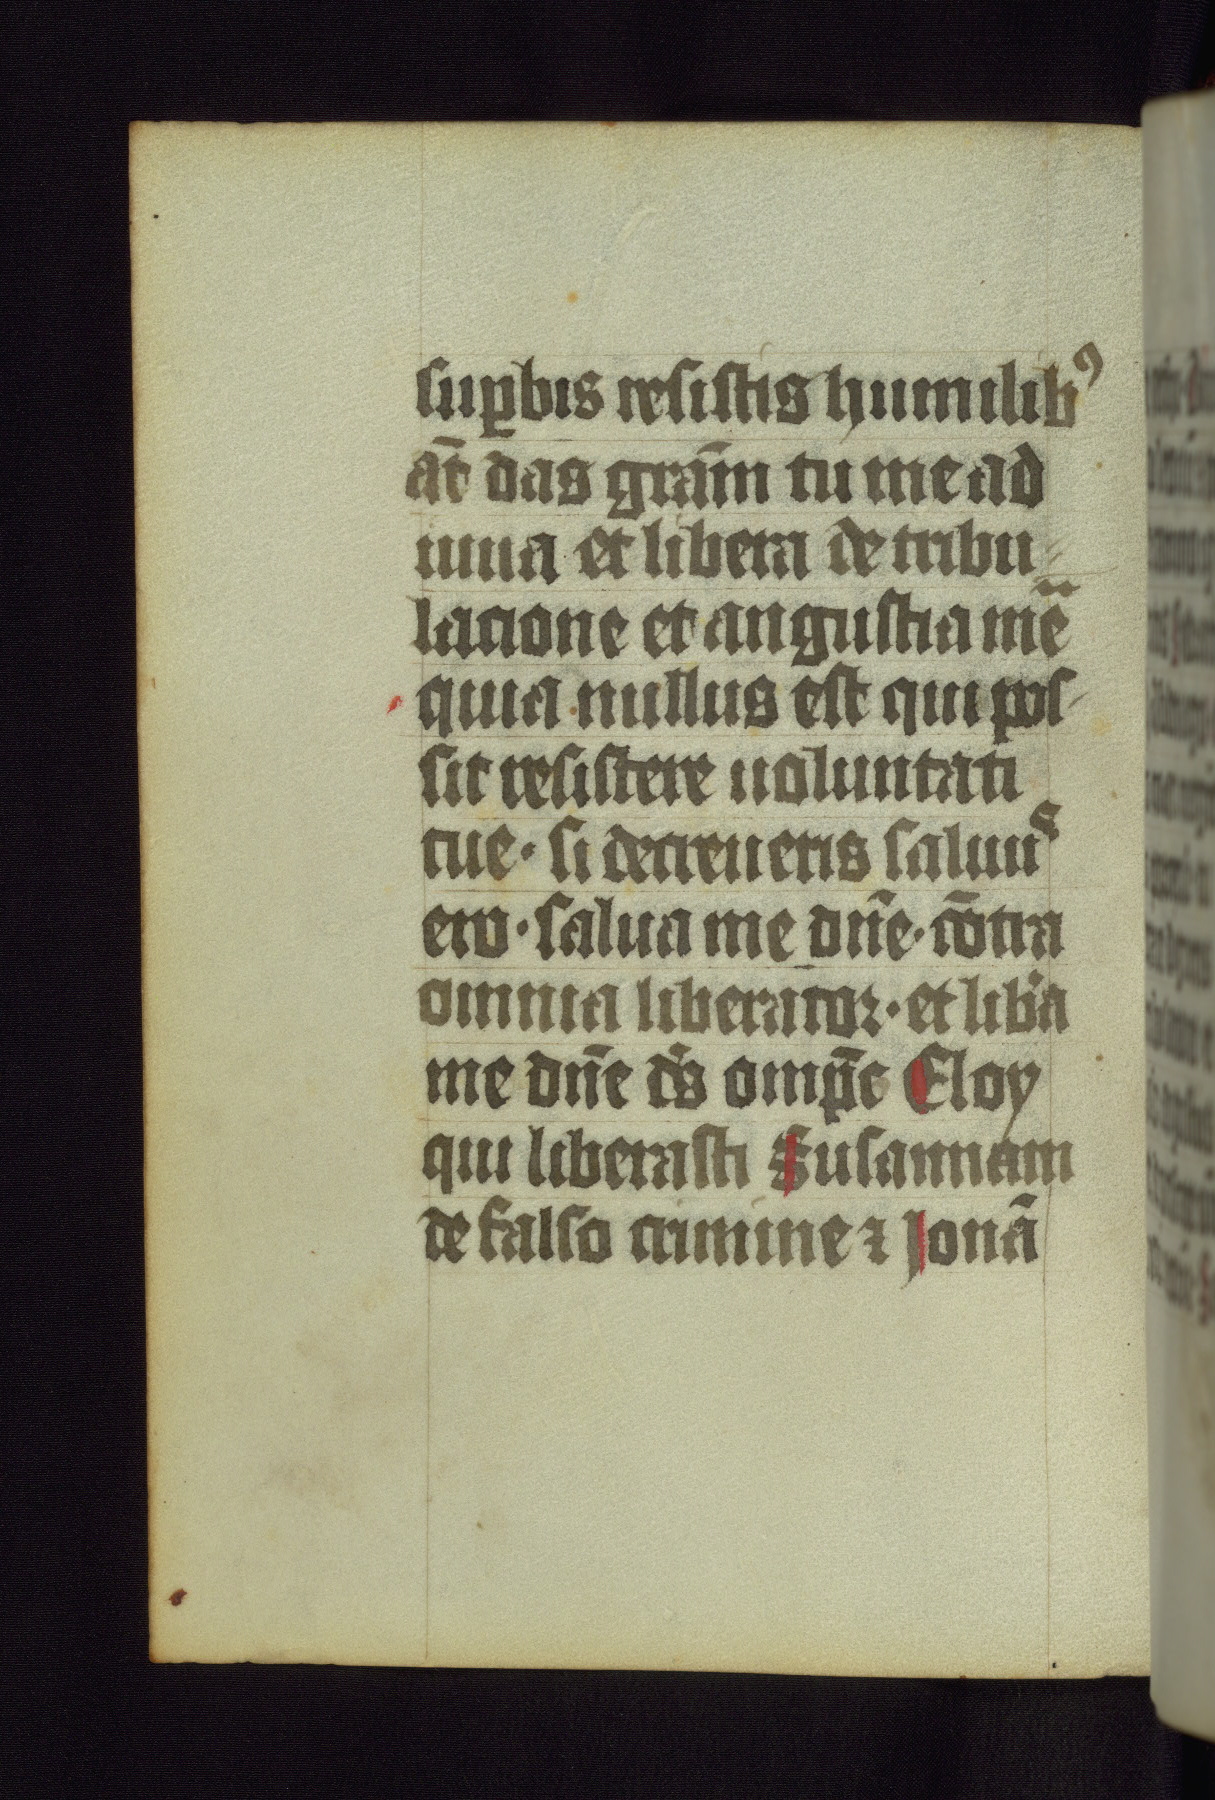 suꝑbis resistis humilibꝰ
aūt das grām tu me ad
iuua et libera de tribu
lacione et angustia mē
quia nullus est qui pos
sit resistere uoluntati
tue · si decreueris saluus
ero · salua me dn̄e · cōtra
omnia liberator · et lib̾a
me dn̄e ds̄ omp̄c Eloy
qui liberasti Susannam
de falso crimine ⁊ Jonā